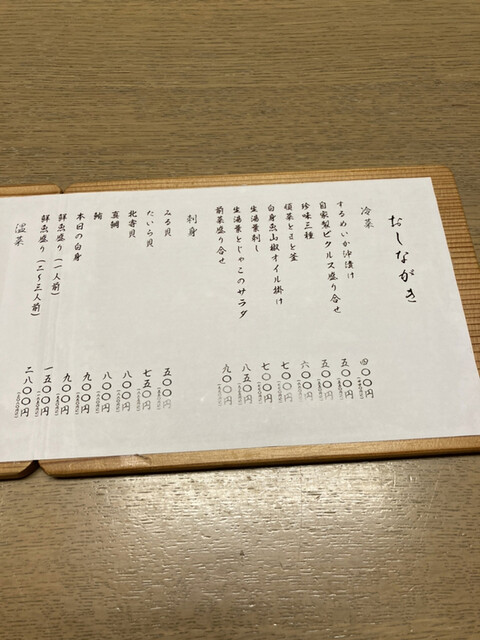 おしながき
冷菜
するめいか沖漬け 四〇〇円
自家製ピクルス盛り合せ 五〇〇円
珍味三種 五〇〇円
六〇〇円
白身魚山椒オイル掛け 七〇〇円
生湯葉刺し 七〇〇円
生湯葉とじゃこのサラダ 八五〇円
前菜盛り合せ 九〇〇円
刺身
みる貝 五〇〇円
たいら貝 七五〇円
北寄貝 八〇〇円
真鯛 八〇〇円
鮪 九〇〇円
本日の白身 九〇〇円
鮮魚盛り（一人前） 一五〇〇円
鮮魚盛り（二〜三人前） 二八〇〇円
温菜